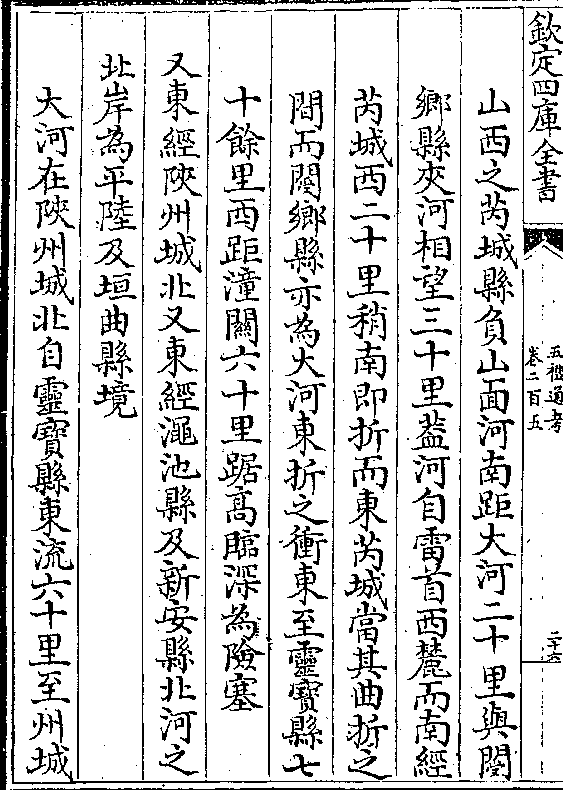 欽定四庫全書
五禮通考
卷二百五
二十六
山西之芮城縣負山面河南距大河二十里與閿
鄉縣夾河相望三十里葢河自雷首西麓而南經
芮城西二十里稍南即折而東芮城當其曲折之
間而閿鄉縣亦為大河東折之衝東至靈寳縣七
十餘里西距潼關六十里踞高臨深為險塞
又東經陜州城北又東經澠池縣及新安縣北河之
北岸為平陸及垣曲縣境
大河在陜州城北自靈寳縣東流六十里至州城